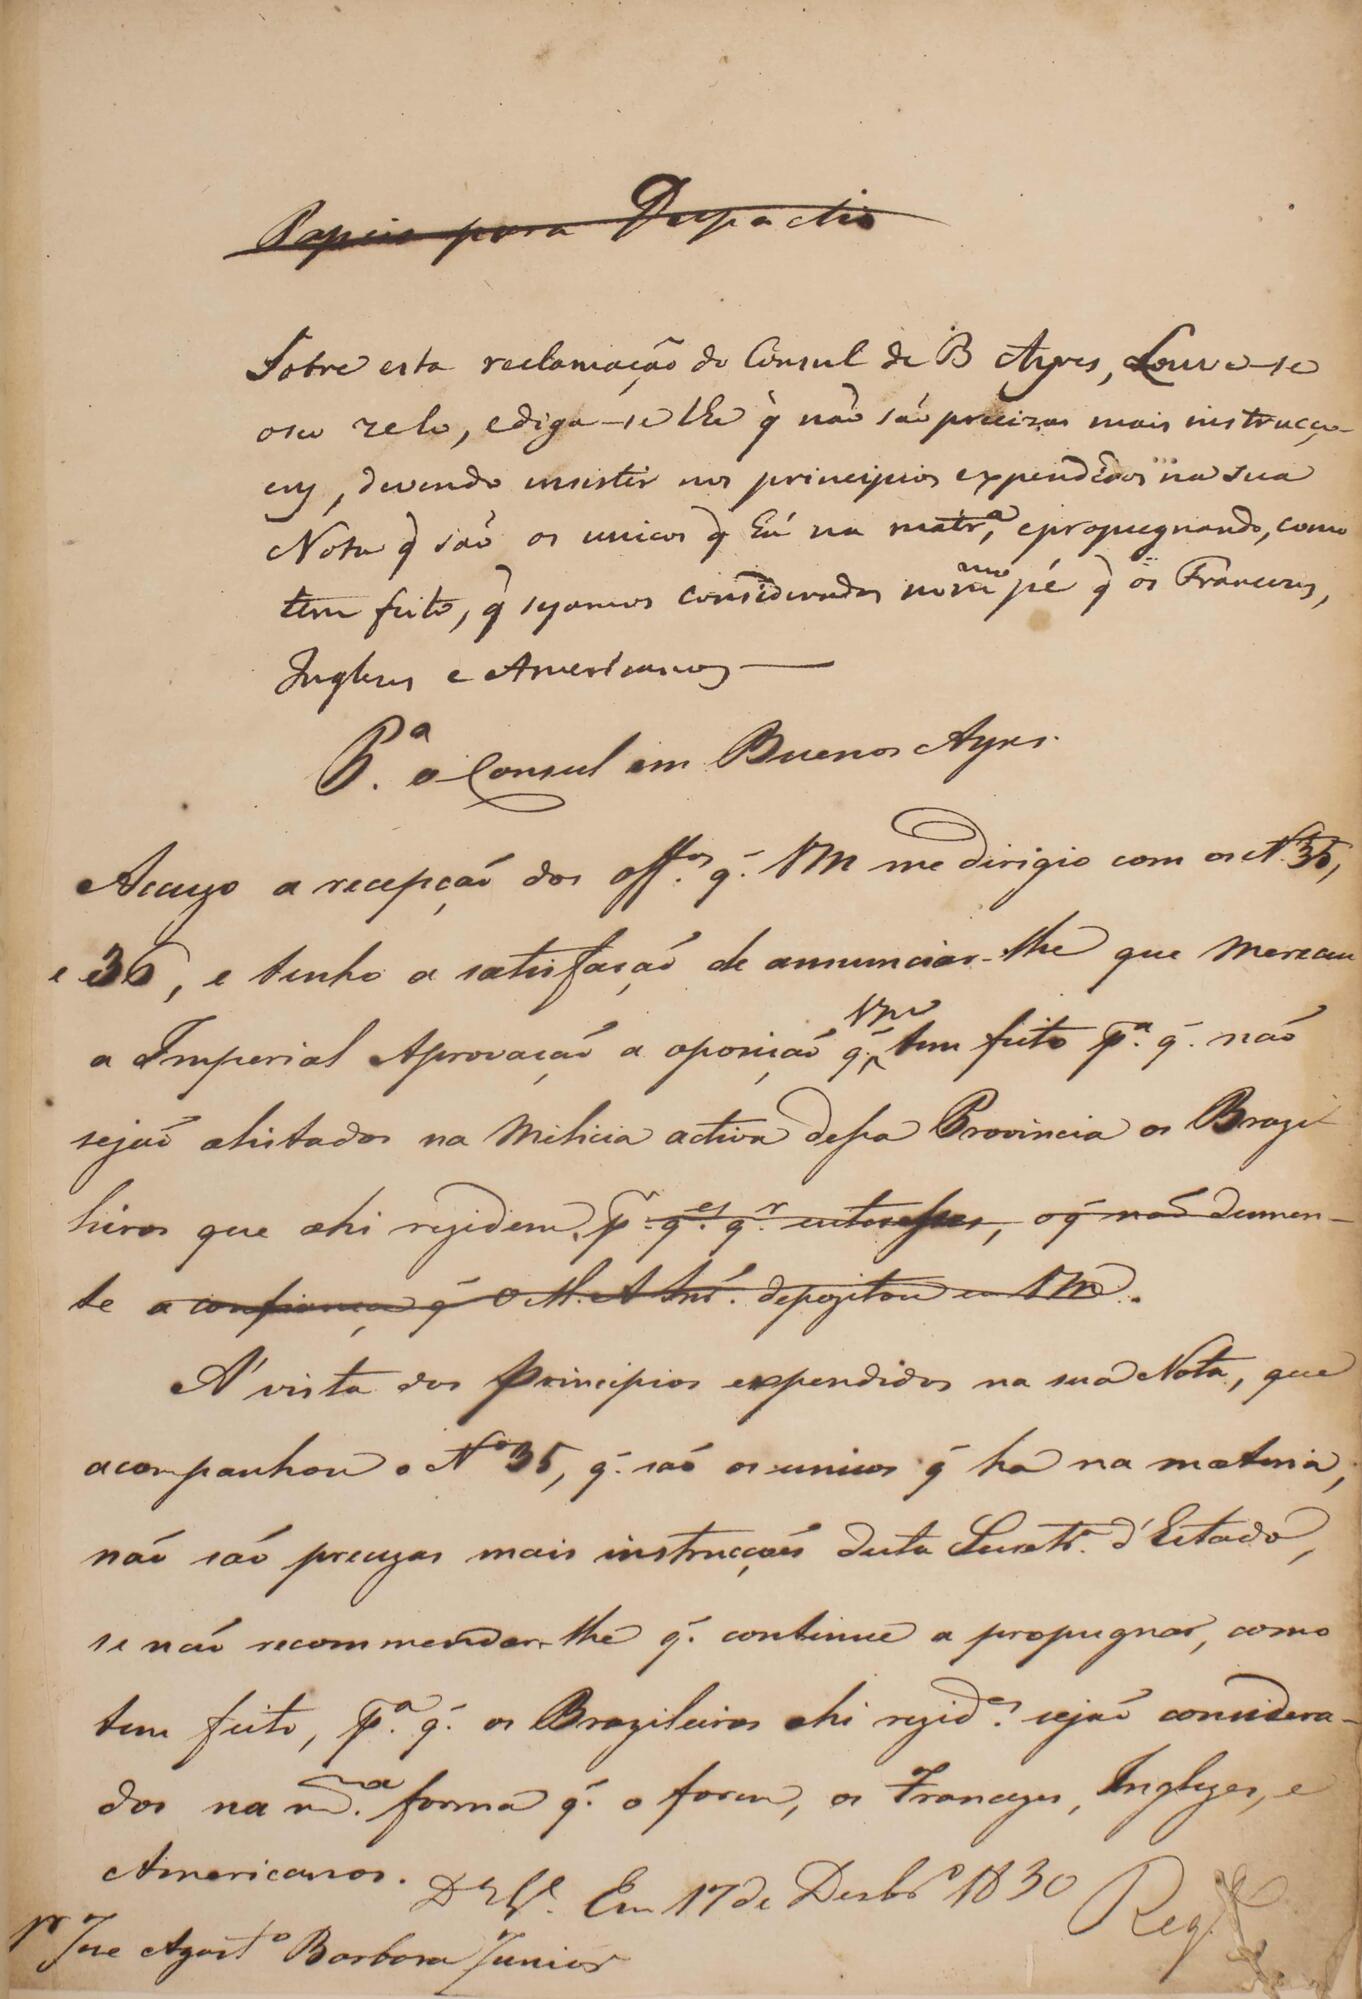 Papeis para Despacho
Sobre esta reclamação do Consul de B Ayres, Louve-se
o seu zelo, e diga-se lhe q̃ não são precizas mais instrucço-
ens, devendo insistir nos principios expendidos na sua
Nota q̃ são os unicos q̃ há na matr.ª, e propugnando, como
tem feito, q̃ sejamos considerados no m.mo pé q̃ os Francezes,
Inglezes e Americanos
P.ª o Consul em Buenos Ayres.
Accuzo a recepção dos off.os q̃. VM me dirigio com os N.os 35,
e 36, e tenho a satisfação de annunciar-lhe que mereceu
a Imperial Aprovação a oposição q̃. Vmce tem feito p.ª q̃. não
sejão alistados na Milicia activa dessa Provincia os Brazi
leiros que ahi rezidem, p.r q.es q.r interesses, o q̃ não desmen-
te a confiança q̃ O M. A. Im.l depozitou em VM.
Á vista dos Principios expendidos na sua Nota, que
acompanhou o Nº 35, q̃. são os unicos q̃ ha na materia,
não são precizas mais instrucções desta Secretr.ª d'Estado,
se não recommendar-lhe q̃. continue a propugnar, como
tem feito, p.ª q̃. os Brazileiros ahi rezid.es sejão considera-
dos na m.ma forma q̃. o forem, os Francezes, Inglezes, e
Americanos. D.s G.e Em 17 de Dezbr.o 1830 Reg.
pr Jose Agost.o Barboza Junior